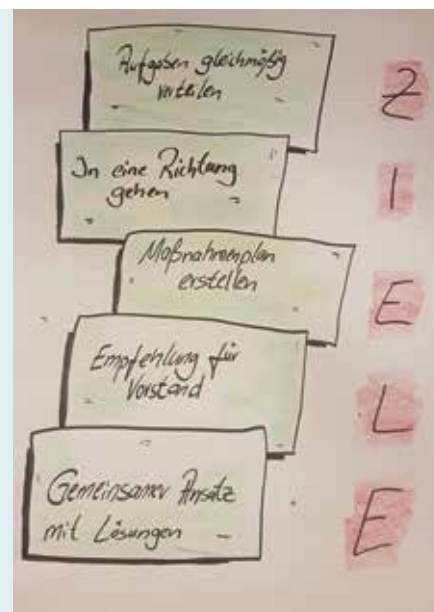 Aufgaben gleichmäßig
verteilen
In eine Richtung
gehen
Maßnahmenplan
erstellen
Empfehlung für
Vorstand
Gemeinsamer Ansatz
mit Lösungen
Z
I
E
L
E